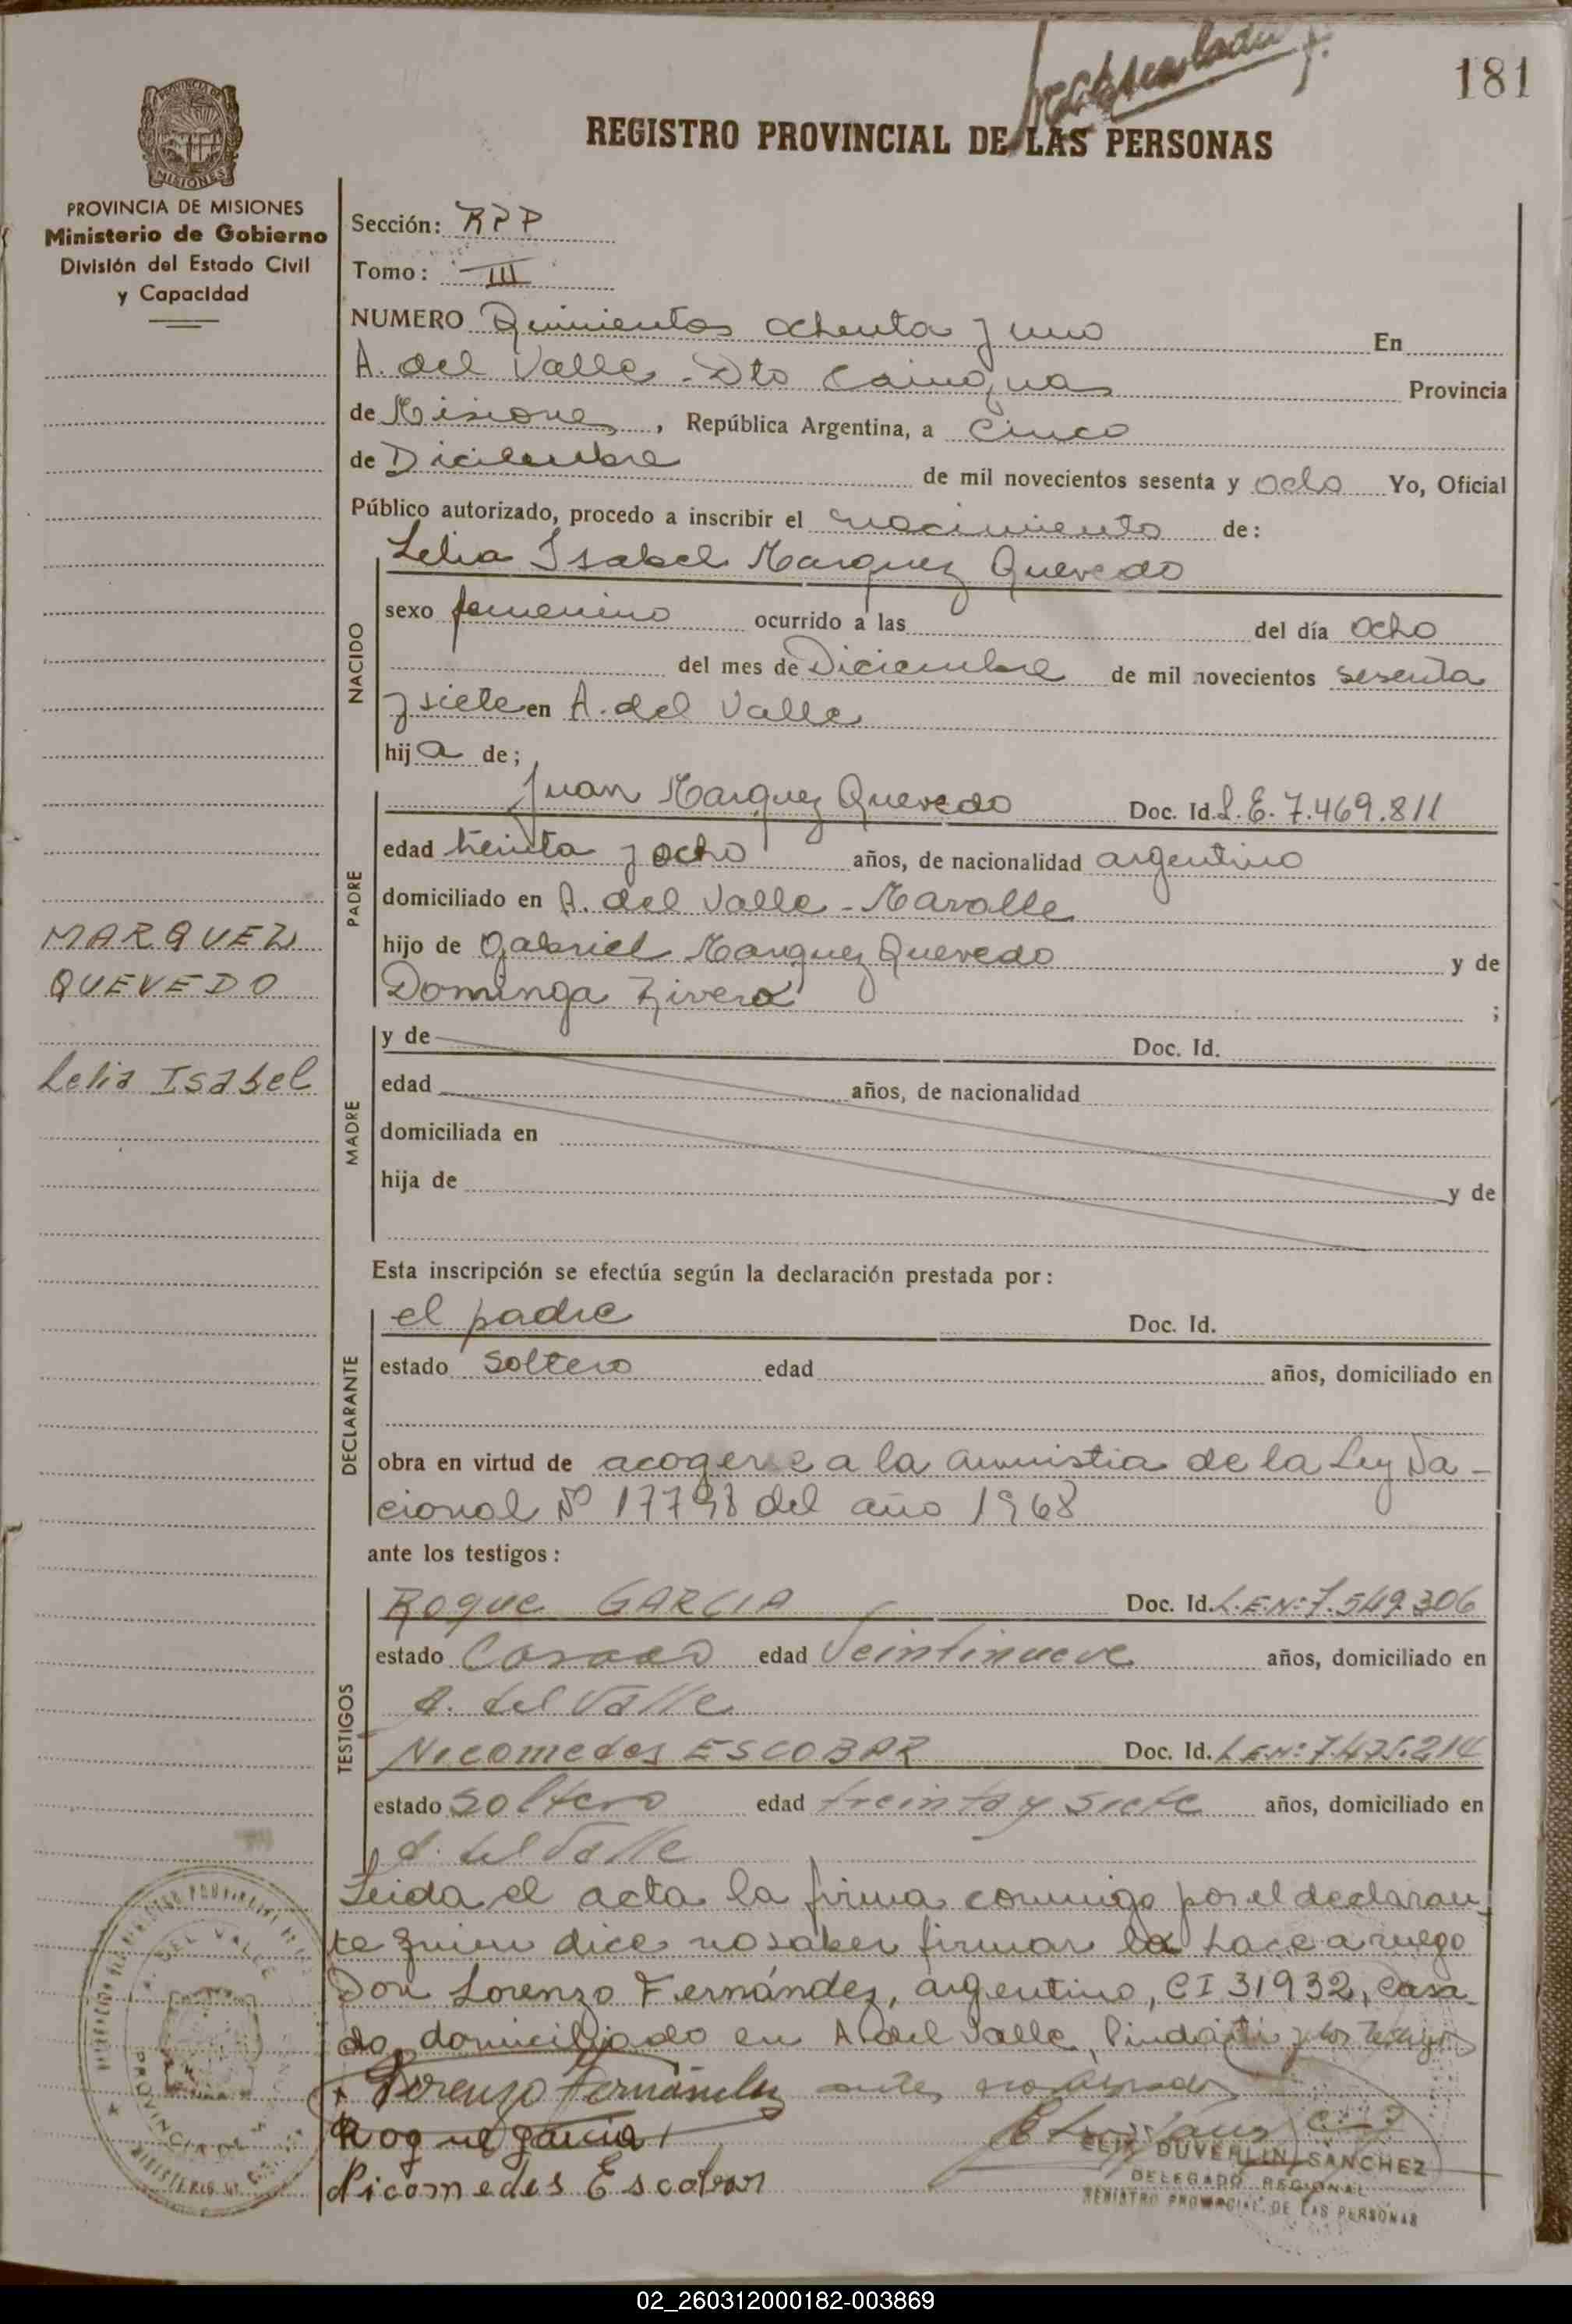 181
REGISTRO PROVINCIAL DE LAS PERSONAS
PROVINCIA DE MISIONES
Ministerio de Gobierno
División del Estado Civil
y Capacidad
Sección: RPP
Tomo: III
NUMERO Quinientos ochenta y uno En
A. del Valle - Dto Cainguas Provincia
de Misiones, República Argentina, a Cinco
de Diciembre de mil novecientos sesenta y ocho Yo, Oficial
Público autorizado, procedo a inscribir el nacimiento de:
NACIDO
Lelia Isabel Marquez Quevedo
sexo femenino ocurrido a las del día ocho
del mes de Diciembre de mil novecientos sesenta
y siete en A. del Valle
hija de;
PADRE
Juan Marquez Quevedo Doc. Id. L.E. 7.469.811
edad treinta y ocho años, de nacionalidad argentino
domiciliado en A. del Valle - Mavalle
hijo de Gabriel Marquez Quevedo y de
Dominga Rivero ;
MARQUEZ
QUEVEDO
Lelia Isabel
MADRE
y de Doc. Id.
edad años, de nacionalidad
domiciliada en
hija de y de
Esta inscripción se efectúa según la declaración prestada por:
DECLARANTE
el padre Doc. Id.
estado soltero edad años, domiciliado en
obra en virtud de acogerse a la amnistia de la Ley Na-
cional Nº 17798 del año 1968
ante los testigos:
TESTIGOS
Roque GARCIA Doc. Id. L.E.Nº 7.549.306
estado Casado edad Veintinueve años, domiciliado en
A. del Valle
Nicomedes ESCOBAR Doc. Id. L.E.Nº 7.475.214
estado Soltero edad treinta y siete años, domiciliado en
A. del Valle
Leida el acta la firma conmigo por el declaran-
te quien dice no saber firmar lo hace a ruego
Don Lorenzo Fernández, argentino, CI 31932, casa-
do, domiciliado en A. del Valle, y los testigos
Lorenzo Fernández antes nombrados
Roque garcia
Nicomedes Escobar
DUVERLIN SANCHEZ
DELEGADO REGIONAL
REGISTRO PROVINCIAL DE LAS PERSONAS
02_260312000182-003869